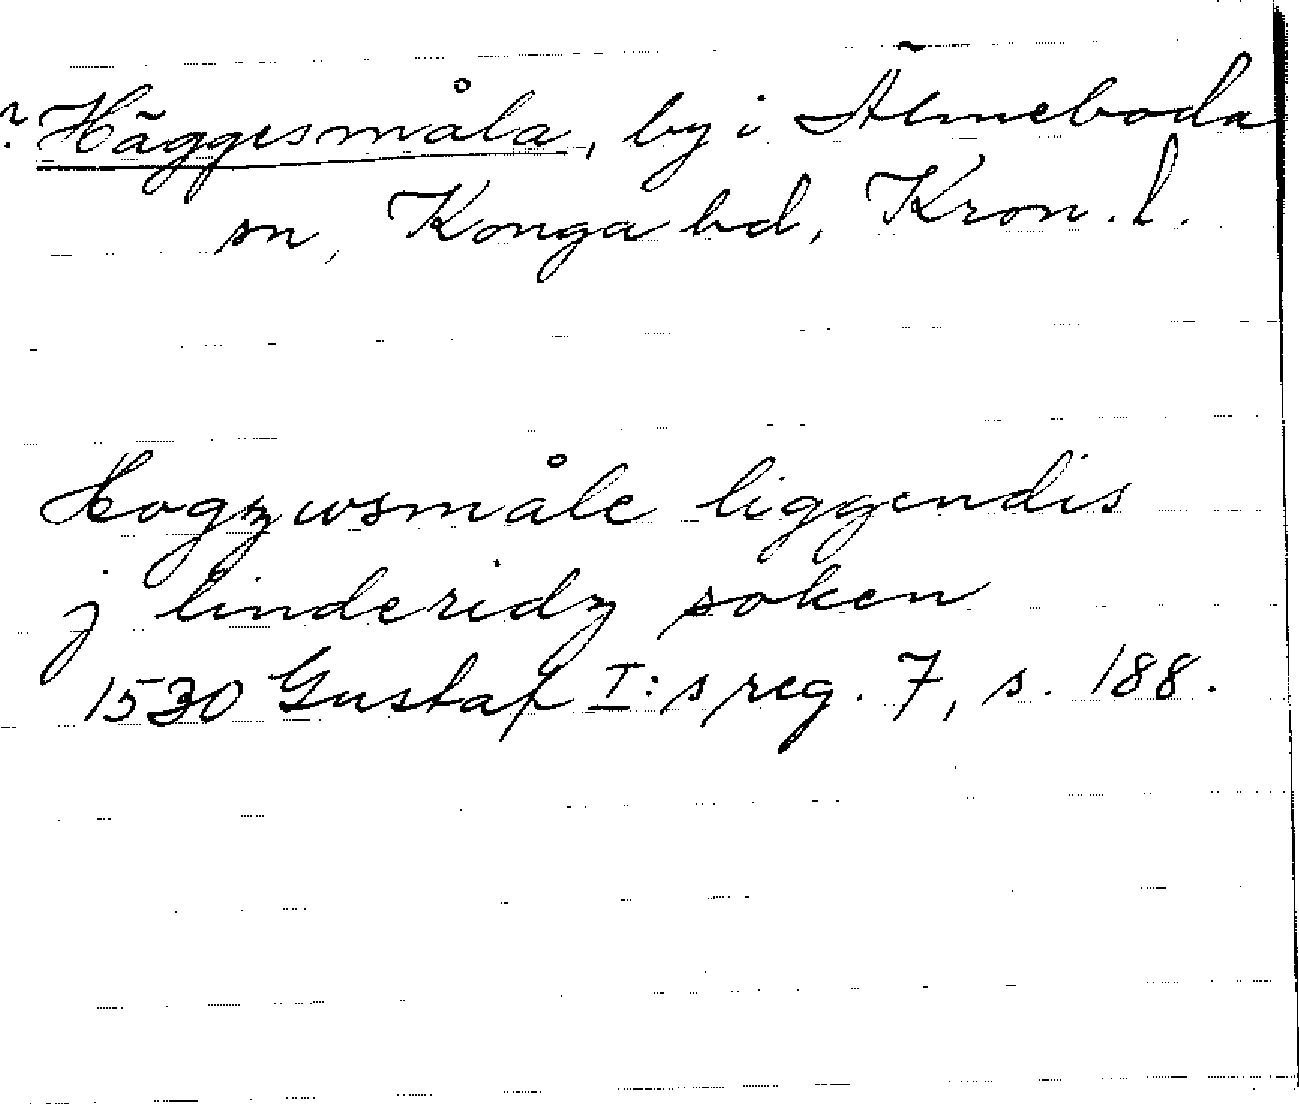 ? Häggesmåla, by i Älmeboda
sn, Konga hd, Kron. l.
Hogzwsmåle liggendis
j linderidz soken
1530 Gustaf I:s reg. 7, s. 188.